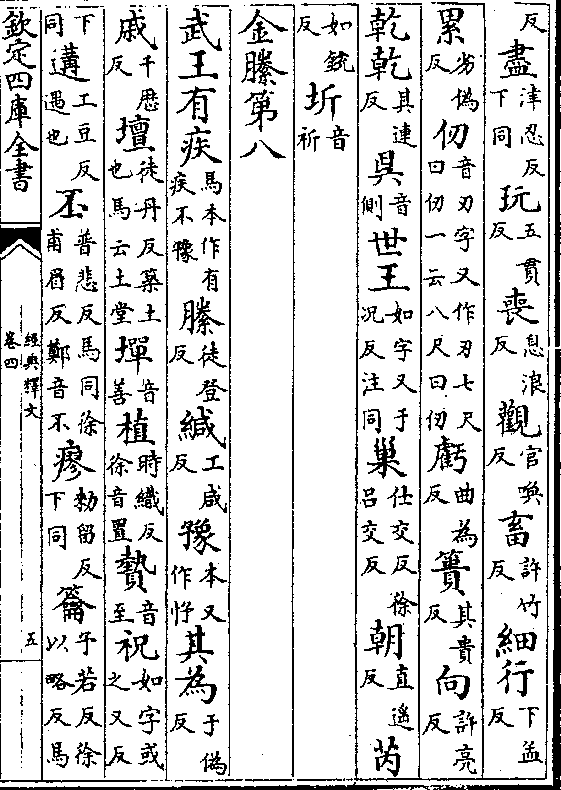 反 盡津忍反下同 玩五貫反 喪息浪反 觀官喚反 畜許竹反 細行下孟反
累劣偽反 仞音刃字又作刃七尺曰仞一云八尺曰仞 虧曲為反 簣其貴反 向許亮反
乾乾其連反 㫷音側 世王如字又于況反注同 巢仕交反徐呂交反 朝直遙反 芮
如銳反 圻音祈
金縢第八
武王有疾馬本作有疾不豫 縢徒登反 緘工咸反 豫本又作忬 其為于偽反
戚千歷反 壇徒丹反築土也馬云土堂 墠音善 植時織反徐音置 贄音至 祝如字或之又反
下同 遘工豆反遇也 丕普悲反馬同徐甫眉反鄭音不 瘳勑留反下同 籥予若反徐以略反馬
欽定四庫全書
經典釋文
卷四
五